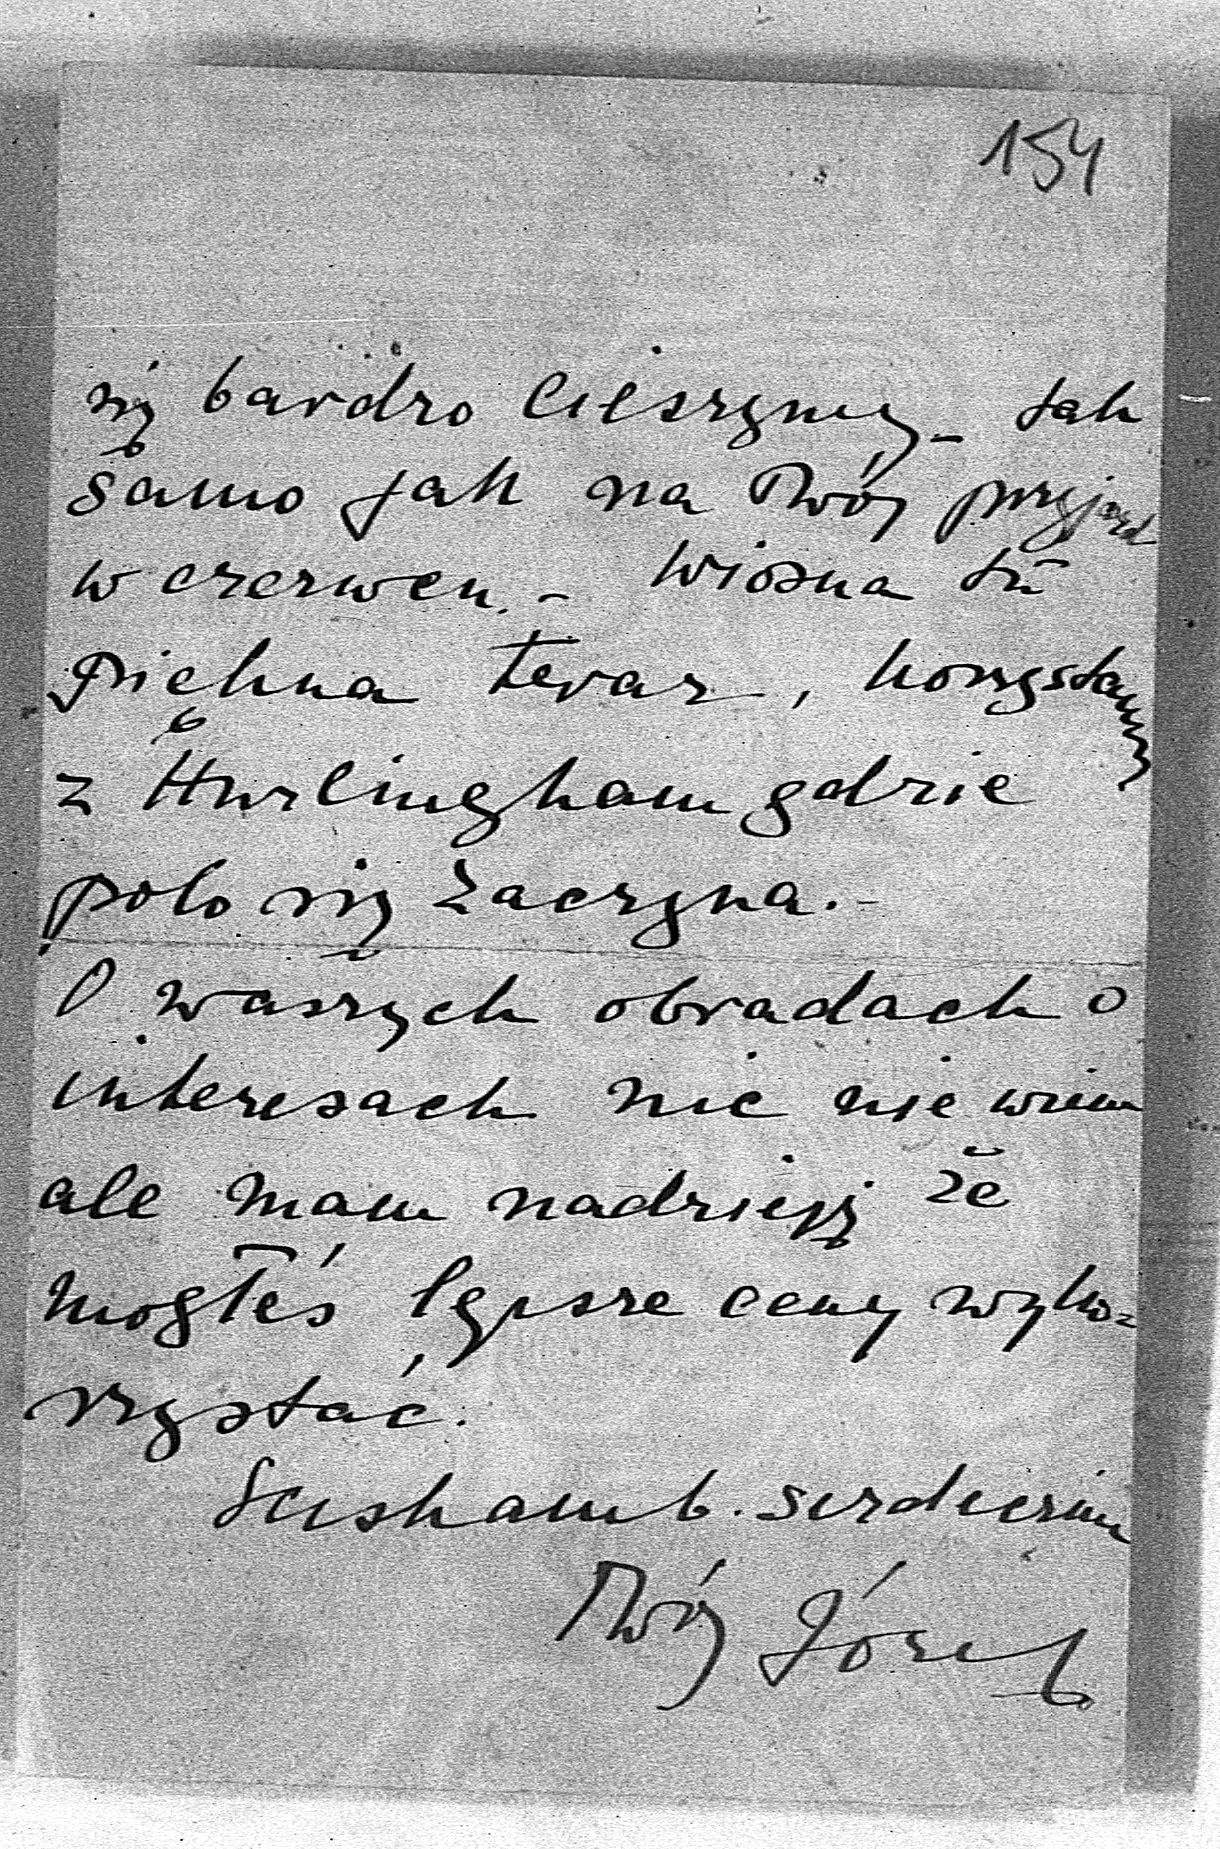 154
się bardzo cieszymy – tak
samo jak na Twój przyjazd
w czerwcu. – Wiosna tu
piękna teraz, korzystamy
z Hurlingham gdzie
polo się zaczyna. –
O waszych obradach o
interesach nic nie wiem
ale mam nadzieję że
mogłeś lepsze ceny wyko=
rzystać.
Sciskam b. serdecznie
Twój Józef